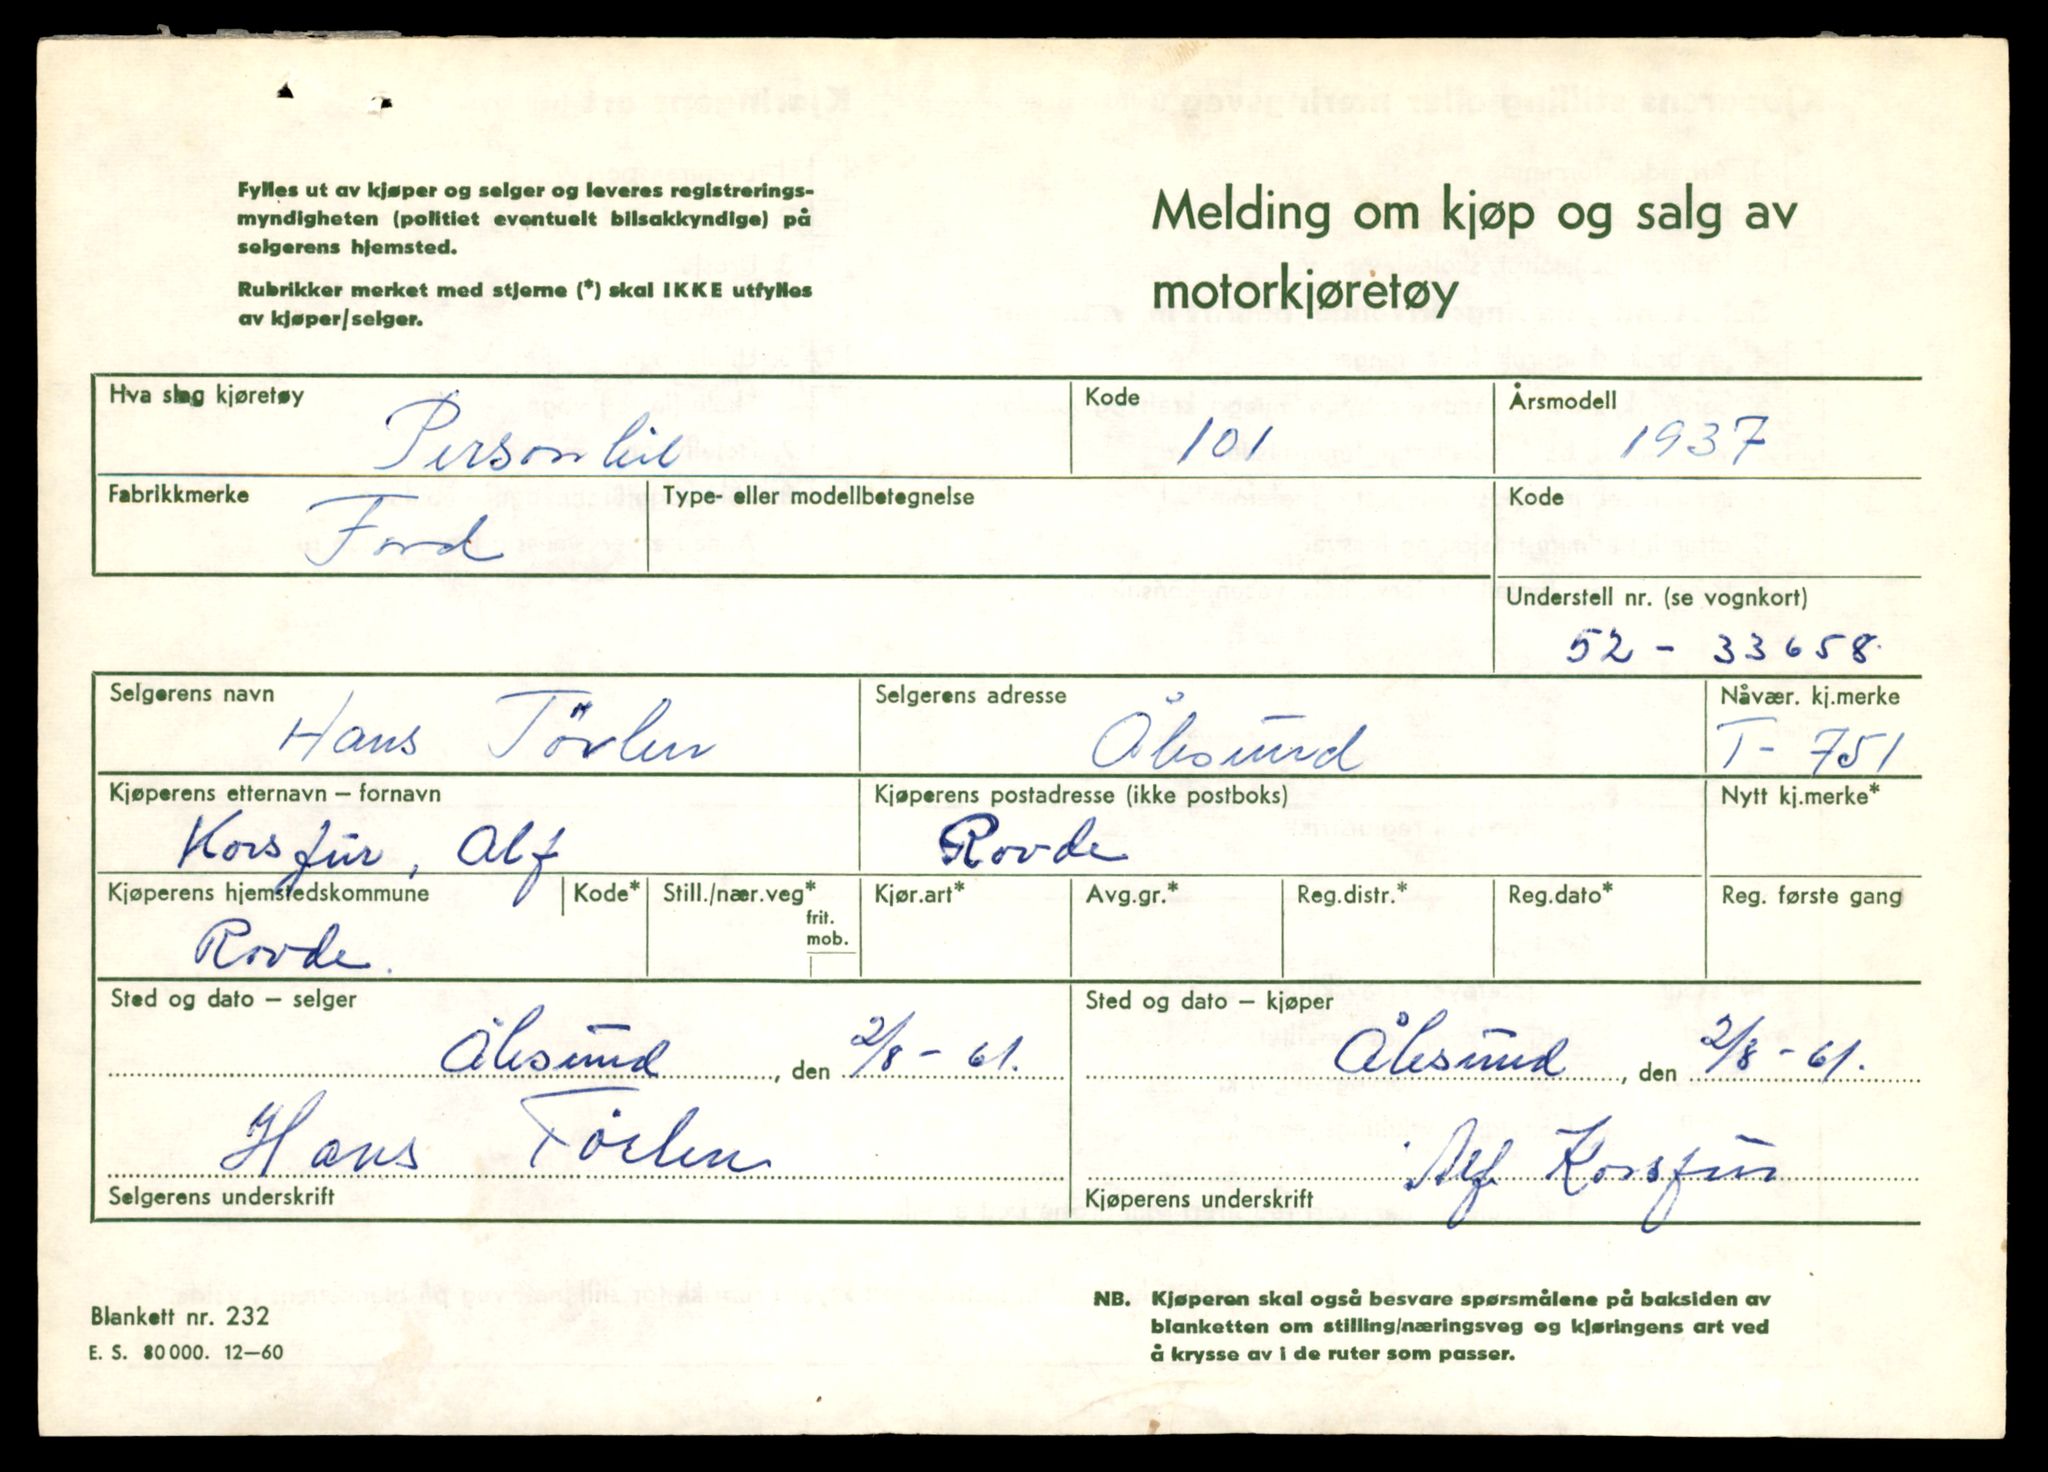 Fylles ut av kjøper og selger og leveres registrerings-
myndigheten (politiet eventuelt bilsakkyndige) på
selgerens hjemsted.
Rubrikker merket med stjerne (*) skal IKKE utfylles
av kjøper/selger.
Melding om kjøp og salg av
motorkjøretøy
Hva slag kjøretøy
Personbil
Kode
101
Årsmodell
1937
Fabrikkmerke
Ford
Type- eller modellbetegnelse
Kode
Understell nr. (se vognkort)
52 - 33658.
Selgerens navn
Hans Törlen
Selgerens adresse
Ålesund
Nåvær. kj.merke
T- 751
Kjøperens etternavn – fornavn
Korsfur, Alf
Kjøperens postadresse (ikke postboks)
Rovde
Nytt kj.merke*
Kjøperens hjemstedskommune
Rovde.
Kode*
Still./nær.veg*
frit.
mob.
Kjør.art*
Avg.gr.*
Reg.distr.*
Reg.dato*
Reg. første gang
Sted og dato – selger
Ålesund, den 2/8 - 61.
Hans Törlen
Selgerens underskrift
Sted og dato – kjøper
Ålesund, den 2/8 - 61.
Alf Korsfur
Kjøperens underskrift
Blankett nr. 232
E. S. 80 000. 12–60
NB. Kjøperen skal også besvare spørsmålene på baksiden av
blanketten om stilling/næringsveg og kjøringens art ved
å krysse av i de ruter som passer.